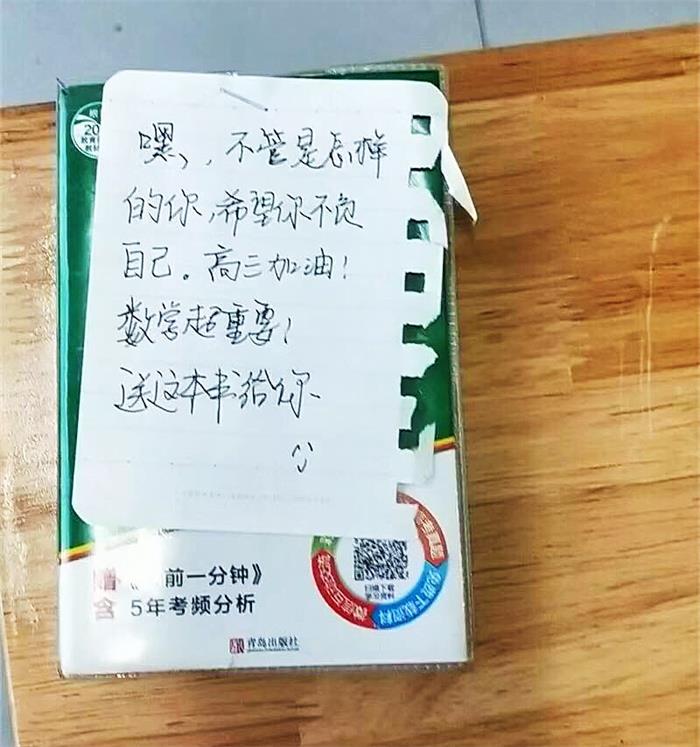 嘿、, 不管是怎样
的你,希望你不负
自己。高三加油!
数学超重要!
送这本书给你、
赠 《 前一分钟》
含 5年考频分析
扫描下载
学习资料
免费下载资料
青岛出版社